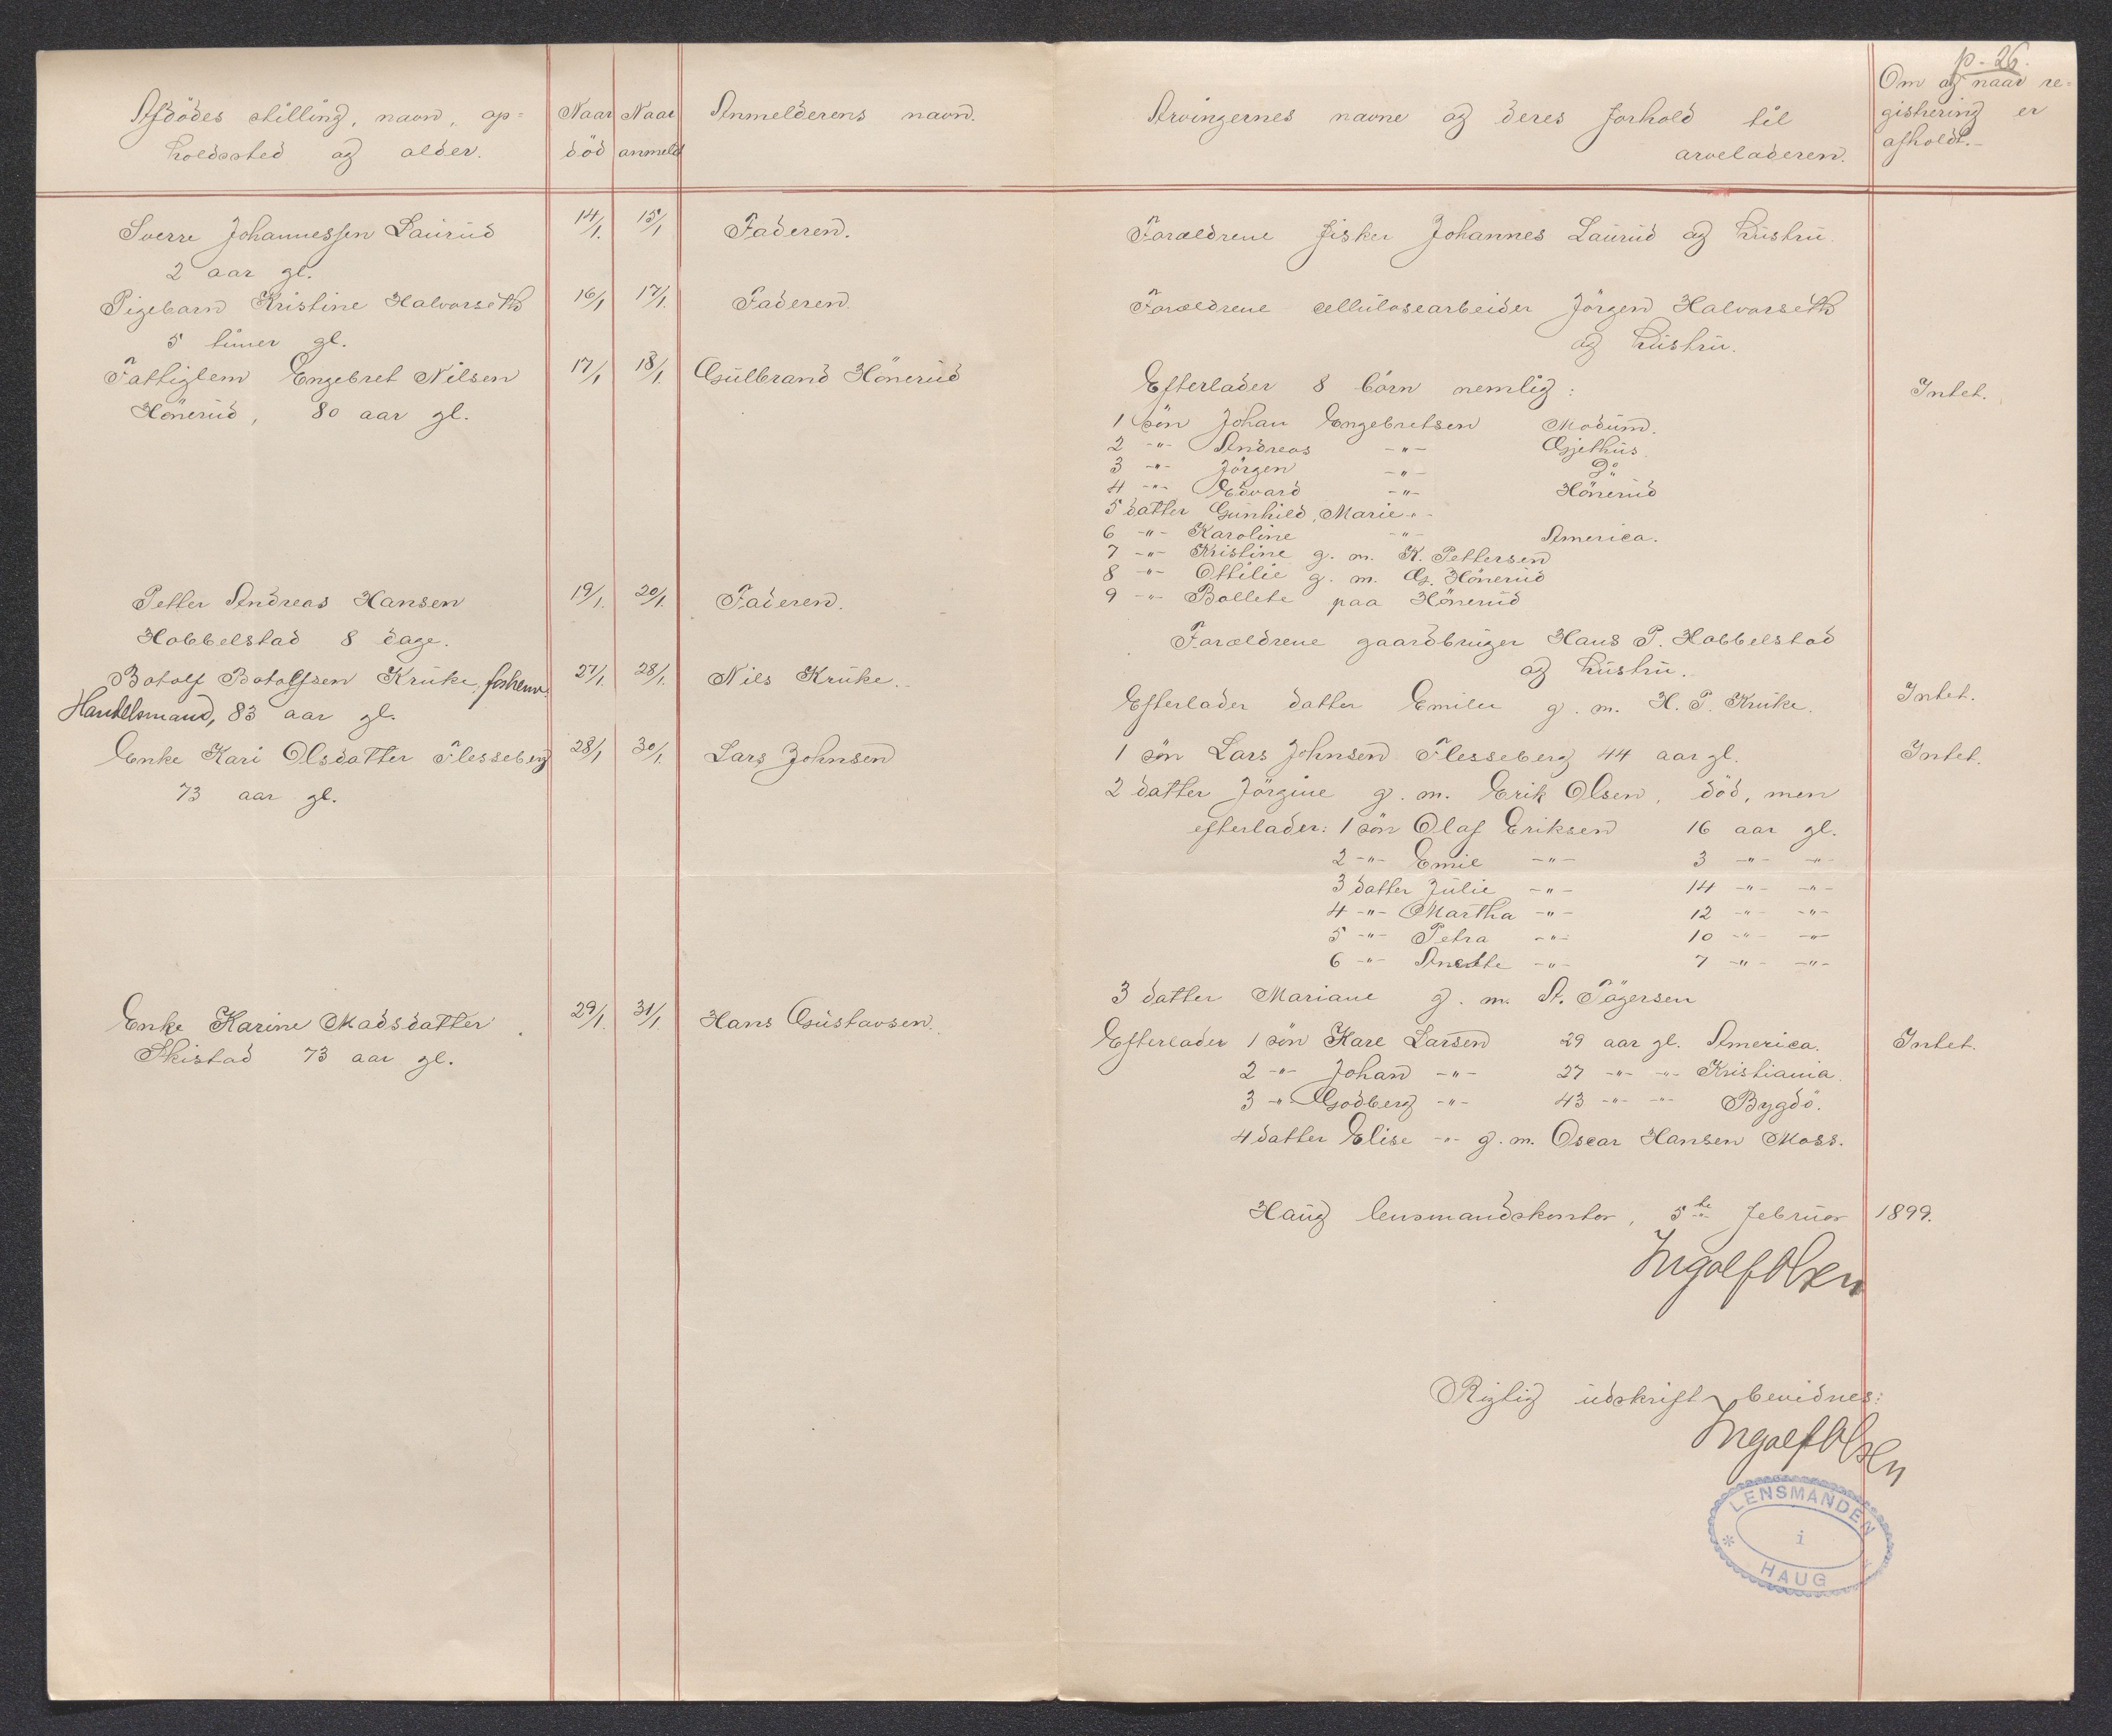 p. 26.
Afdödes stilling, navn, op=
holdssted og alder.
Naar
död
Naar
anmeldt
Anmelderens navn.
Arvingernes navne og deres forhold til
arveladeren.
Om og naar re=
gistrering er
afholdt.
Sverre Johannessen Laurud 14/1. 15/1 Faderen. Forældrene fisker Johannes Laurud og hustru.
2 aar gl.
Pigebarn Kristine Halvorseth 16/1 17/1. Faderen. Forældrene cellulosearbeider Jörgen Halvorseth
5 timer gl. og hustru.
Fattiglem Engebret Nilsen 17/1 18/1. Gulbrand Hönerud Efterlader 8 börn nemlig: Intet.
Hönerud, 80 aar gl.
1 sön Johan Engebretsen Modum.
2 -"- Andreas -"- Gjethus.
3 -"- Jörgen -"- Do
4 -"- Edvard -"- Hönerud
5 datter Gunhild, Marie -"-
6 -"- Karoline -"- America.
7 -"- Kristine g. m. K. Pettersen
8 -"- Ottilie g. m. G. Hönerud
9 -"- Bollete paa Hönerud
Petter Andreas Hansen 19/1. 20/1. Faderen.
Hobbelstad 8 dage. Forældrene gaardbruger Hans P. Hobbelstad
og hustru.
Botolf Botolfsen Kruke, forhenv. 27/1. 28/1. Nils Kruke. Efterlader datter Emilie g. m. H. P. Kruke. Intet.
Handelsmand, 83 aar gl.
Enke Kari Olsdatter Flesseberg 28/1 30/1. Lars Johnsen 1 sön Lars Johnsen Flesseberg 44 aar gl. Intet.
73 aar gl. 2 datter Jörgine g. m. Erik Olsen, död, men
efterlader: 1 sön Olaf Eriksen 16 aar gl.
2 -"- Emil -"- 3 -"- -"-
3 datter Julie -"- 14 -"- -"-
4 -"- Martha -"- 12 -"- -"-
5 -"- Petra -"- 10 -"- -"-
6 -"- Anette -"- 7 -"- -"-
3 datter Mariane g. m. A.
Enke Karine Madsdatter 29/1. 31/1. Hans Gustavsen. Efterlader 1 sön Karl Larsen 29 aar gl. America. Intet.
Skistad 73 aar gl. 2 -"- Johan -"- 27 -"- -"- Kristiania.
3 -"- Godberg -"- 43 -"- -"- Bygdö.
4 datter Elise -"- g. m. Oscar Hansen Moss.
Haug lensmandskontor, 5te februar 1899.
Ingolf Olsen
Rigtig udskrift bevidnes:
Ingolf Olsen
LENSMANDEN
i
HAUG